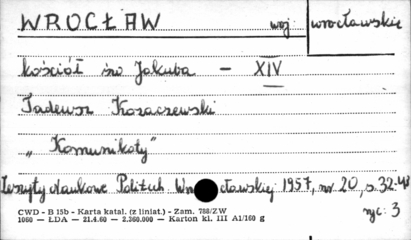 WROCŁAW woj: wrocławskie
kościół św Jakuba – XIV
Tadeusz Kozaczewski
„Komunikaty"
Zeszyty Naukowe Politech. Wrocławskiej 1957, nr 20, s. 32-48
ryc: 3
CWD - B 15b - Karta katal. (z liniat.) - Zam. 788/ZW
1060 — ŁDA — 21.4.60 — 2.360.000 — Karton kl. III A1/160 g